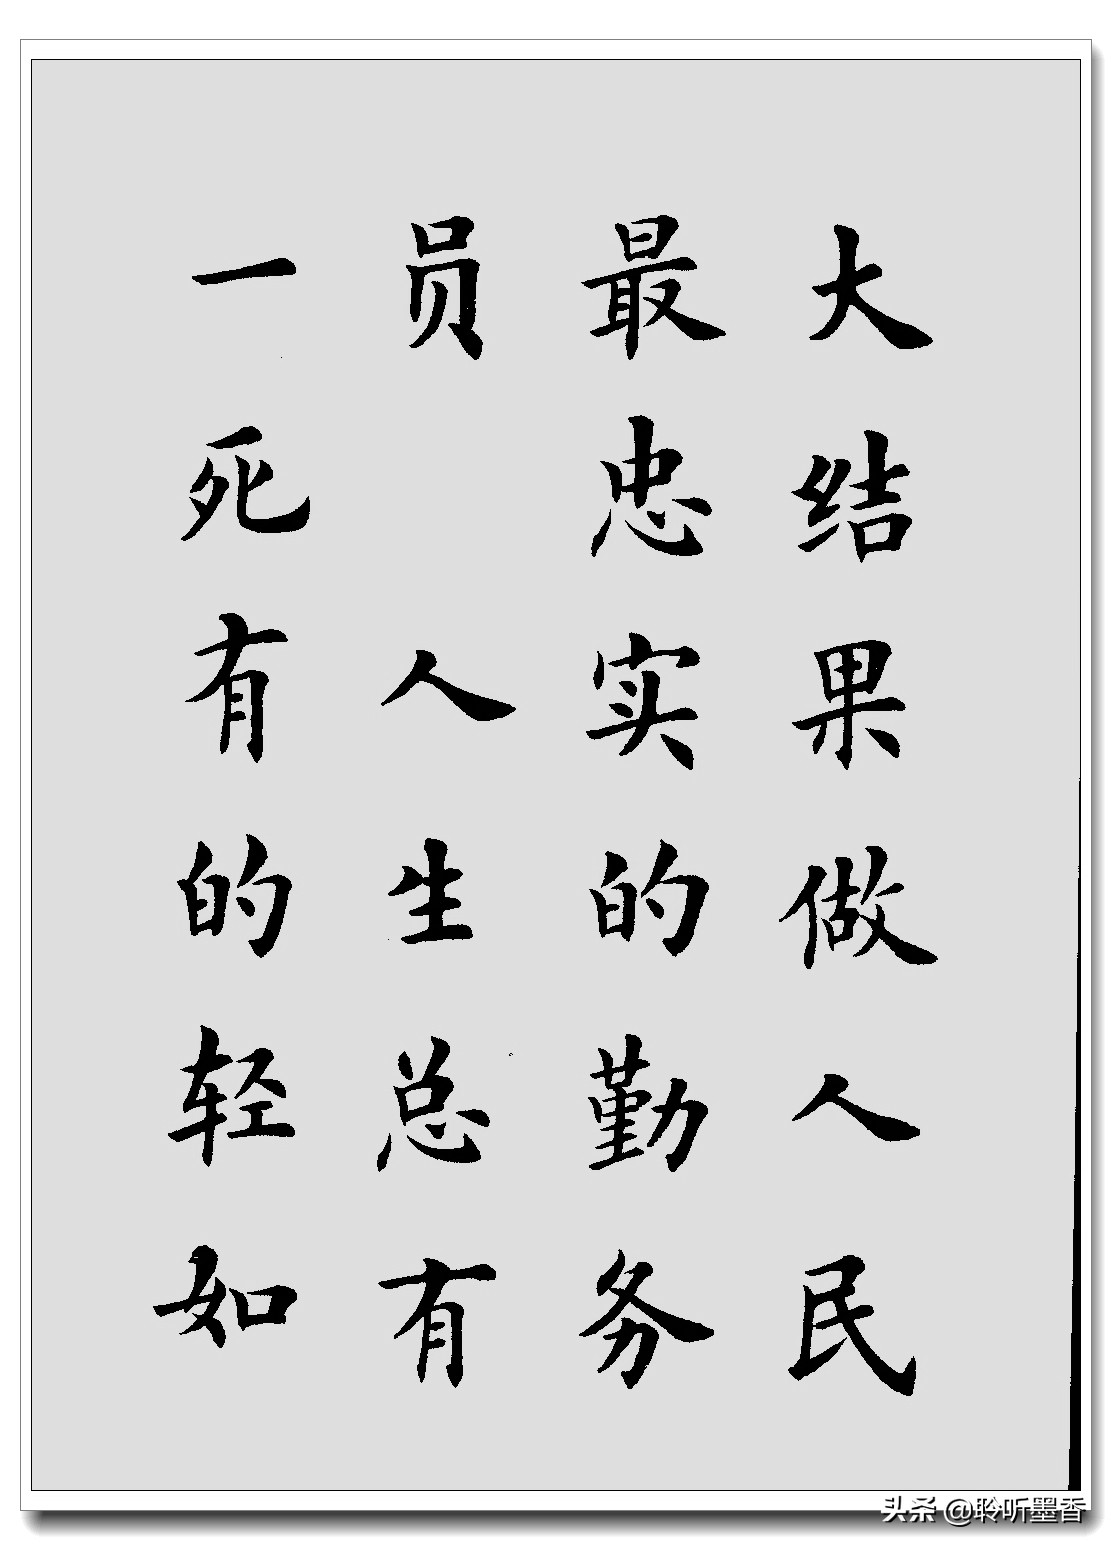 大结果做人民
最忠实的勤务
员 人生总有
一死有的轻如
头条 @聆听墨香